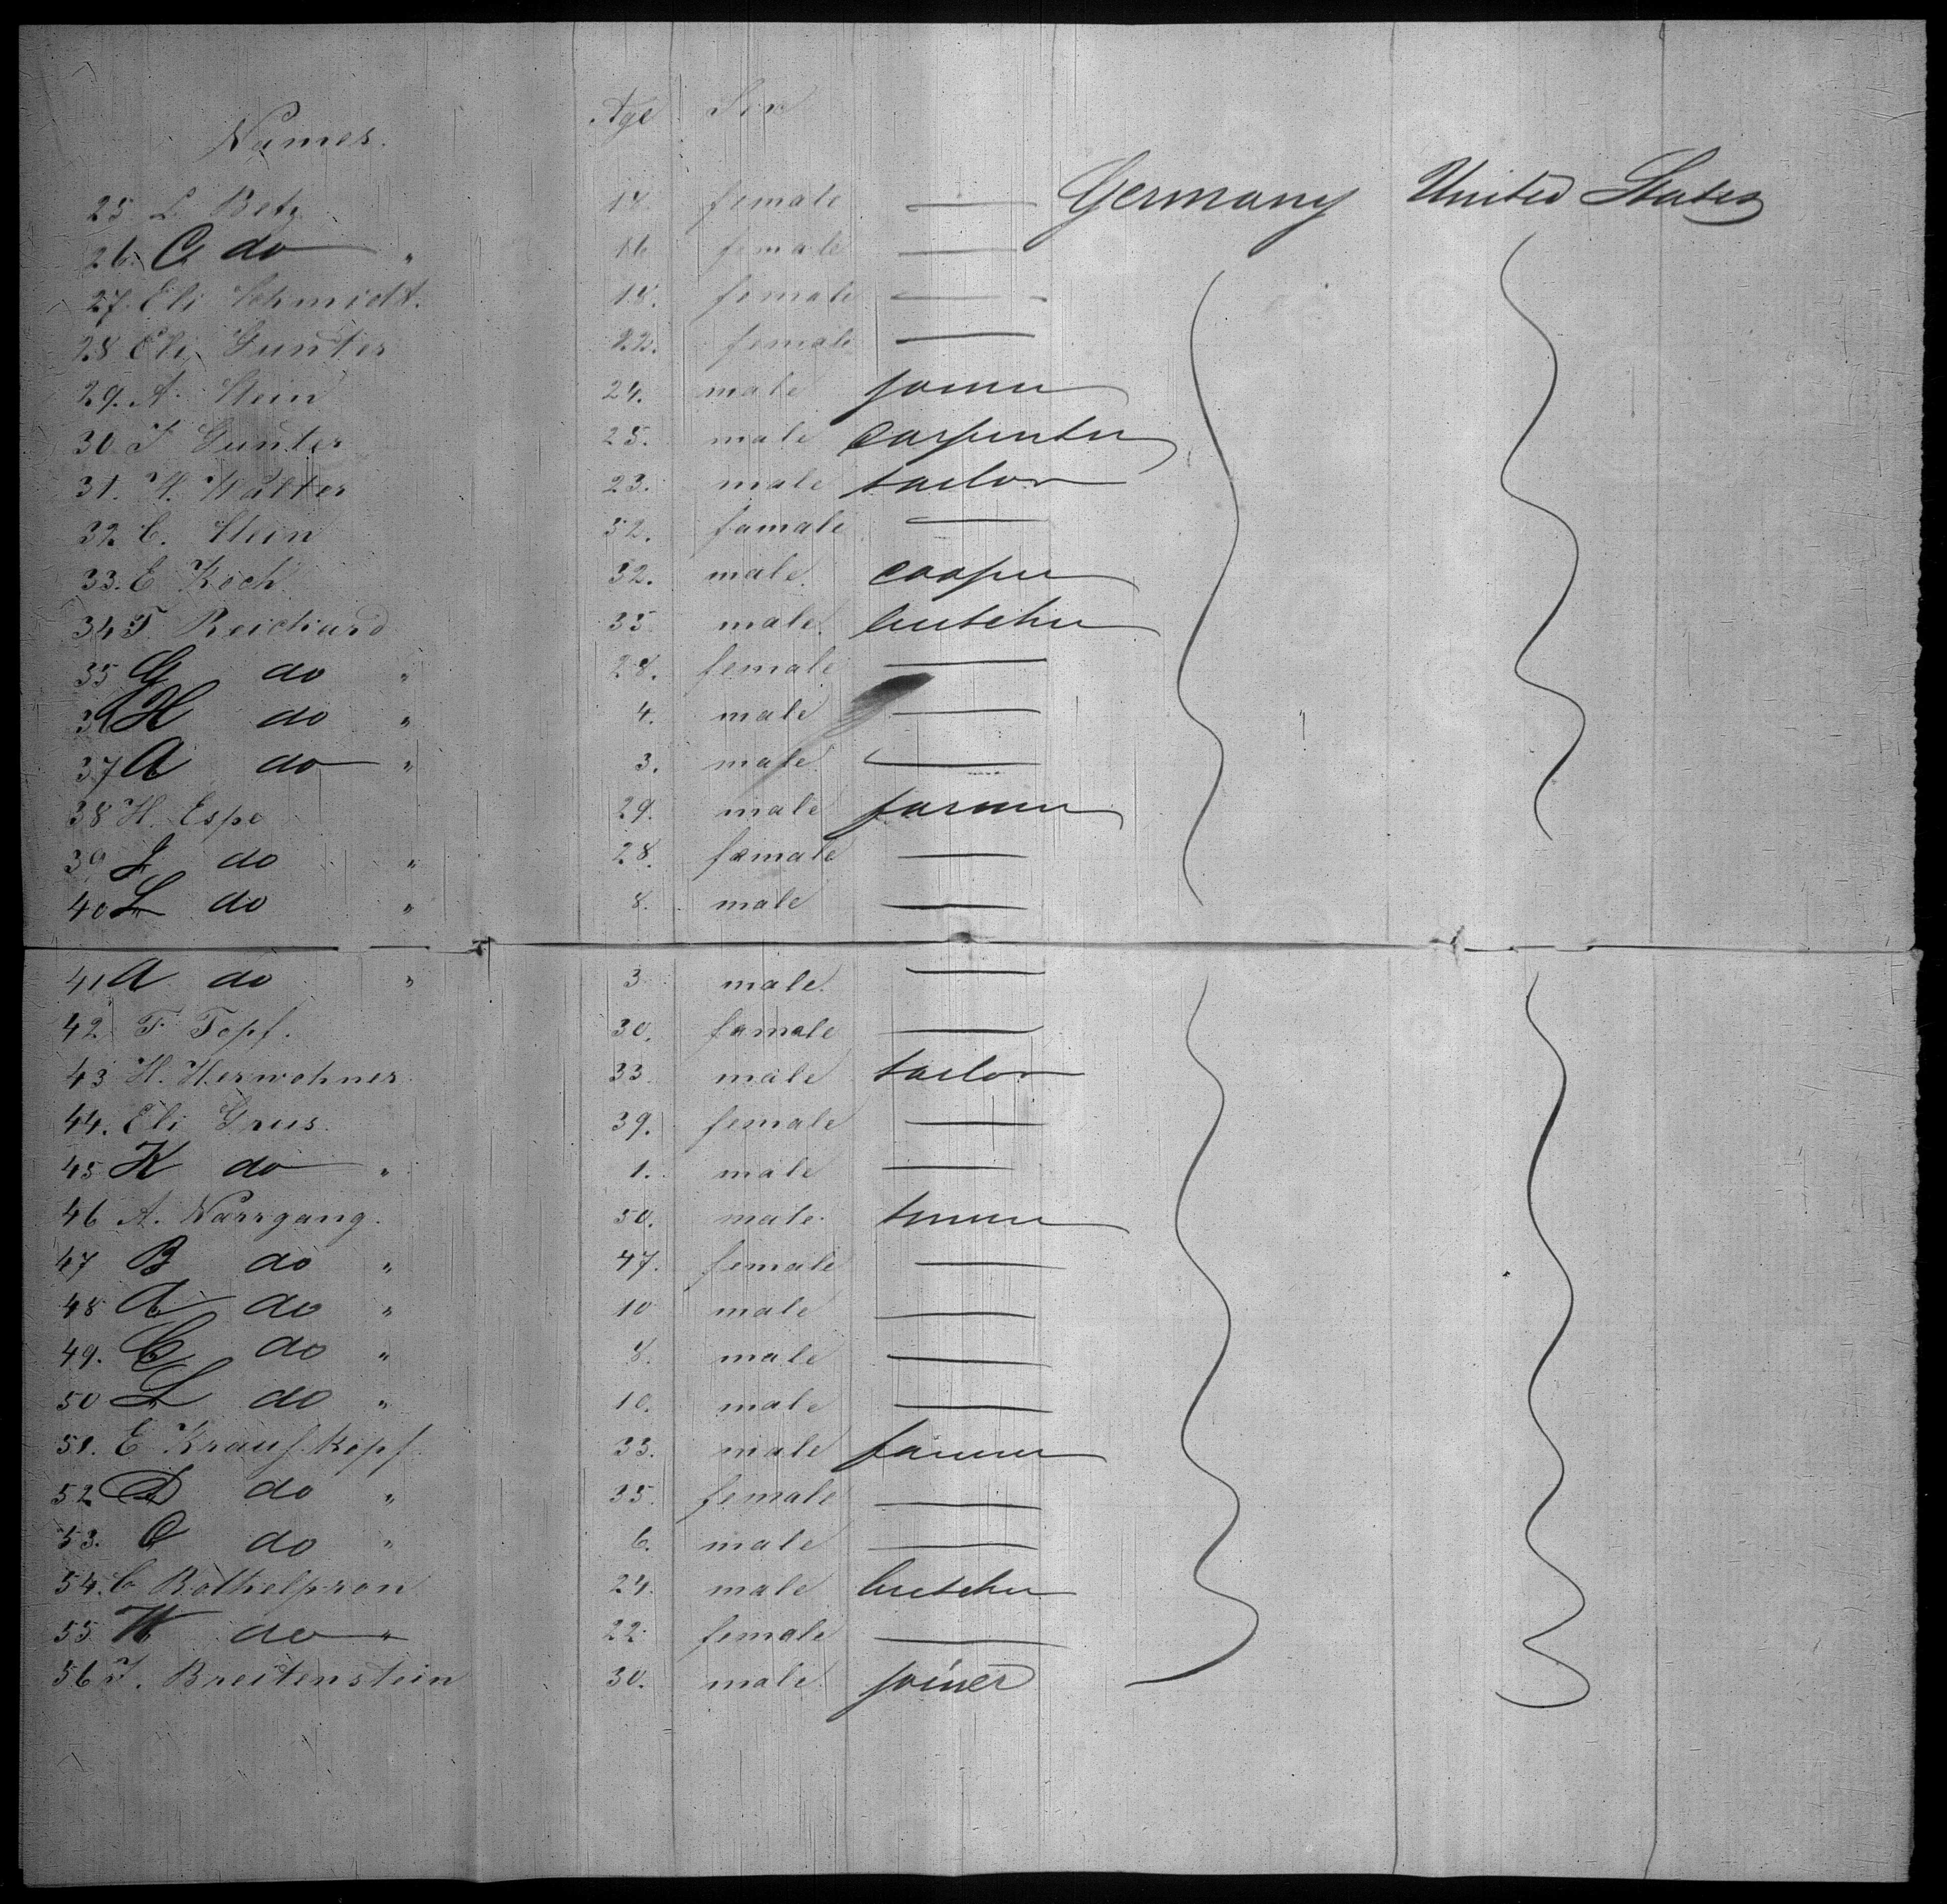 Names. Age Sex
25 L Betz 18. female — Germany United States
26. C do " 16 female —
27. Eli Schmidt. 18. female —
28 Eli Gunter 22. female —
29. A. Stein 24. male joiner
30 J Gunter 25. male carpenter
31. W. Walter 23. male tailor
32 C. Stein 32. famale —
33. E Koch 32. male cooper
34 F. Reichard 35 male butcher
35 G do " 28. female —
36 H do " 4. male —
37 A do " 3. male —
38 H. Espe 29. male farmer
39 J do " 28. female —
40 L do " 8. male —
41 A do " 3 male. —
42. F Topf. 30. famale —
43 H. Herwohner 33 male tailor
44. Eli Grus. 39. female —
45 K do " 1. male —
46 A. Narrgang. 50. male turner
47 B do " 47. female —
48 A do " 10 male —
49. C do " 8. male —
50 L do " 10. male —
51. E Traufkopf 33. male farmer
52 D do " 35. female —
53. C do " 6. male —
54. C Rothelpron 24. male butcher
55 W do " 22 female —
56 J. Breitenstein 30. male joiner